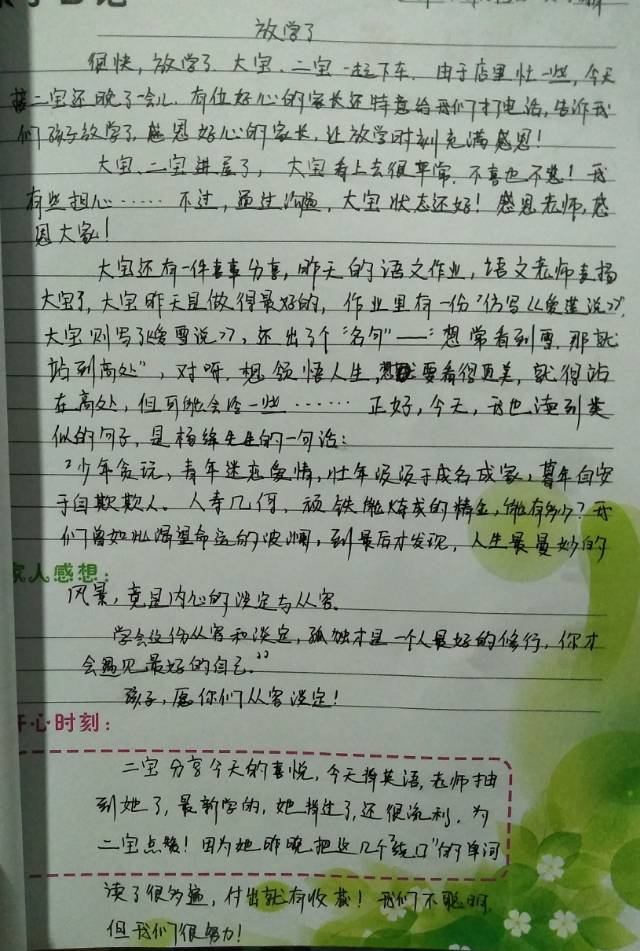 放学了
很快，放学了，大宝、二宝一起下车，由于店里忙一些，今天
接二宝还晚了一会儿，有位好心的家长还特意给我们打电话，告诉我
们孩子放学了，感恩好心的家长，让放学时刻充满感恩！
大宝、二宝进屋了，大宝看上去很平常，不喜也不悲！我
有些担心……不过，通过沟通，大宝状态还好！感恩老师，感
恩大家！
大宝还有一件喜事分享，昨天的语文作业，语文老师表扬
大宝了，大宝昨天是做得最好的，作业里有一份"仿写《爱莲说》"，
大宝则写了《爱雪说》，还出了个"名句"——"想常看到雪，那就
站到高处"，对呀，想领悟人生，要看得更美，就得站
在高处，但可能会冷一些……正好，今天，我也读到类
似的句子，是杨绛先生的一句话：
"少年贪玩，青年迷恋爱情，壮年汲汲于成名成家，暮年自安
于自欺欺人。人寿几何，顽铁能炼成的精金，能有多少？我
们曾如此渴望命运的波澜，到最后才发现，人生最曼妙的
家人感想：
风景，竟是内心的淡定与从容。
学会这份从容和淡定，孤独才是一个人最好的修行，你才
会遇见最好的自己。"
孩子，愿你们从容淡定！
开心时刻：
二宝分享今天的喜悦，今天掉英语，老师抽
到她了，最新学的，她掉过了，还很流利，为
二宝点赞！因为她昨晚把这几个"绕口"的单词
读了很多遍，付出就有收获！我们不聪明，
但我们很努力！